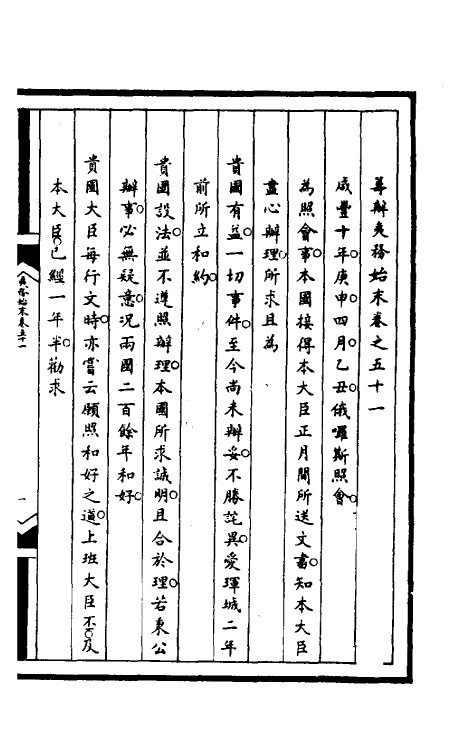 籌辦夷務始末卷之五十一
咸豐十年庚申四月乙丑俄囉斯照會
為照會事本國接得本大臣正月間所送文書知本大臣
盡心辦理所求且為
貴國有益一切事件至今尚未辦妥不勝詫異愛琿城二年
前所立和約
貴國設法並不遵照辦理本國所求誠明且合於理若秉公
辦事必無疑意況兩國二百餘年和好
貴國大臣每行文時亦嘗云願照和好之道上班大臣不及
本大臣已經一年半勸求
夷務始末卷五十一
一